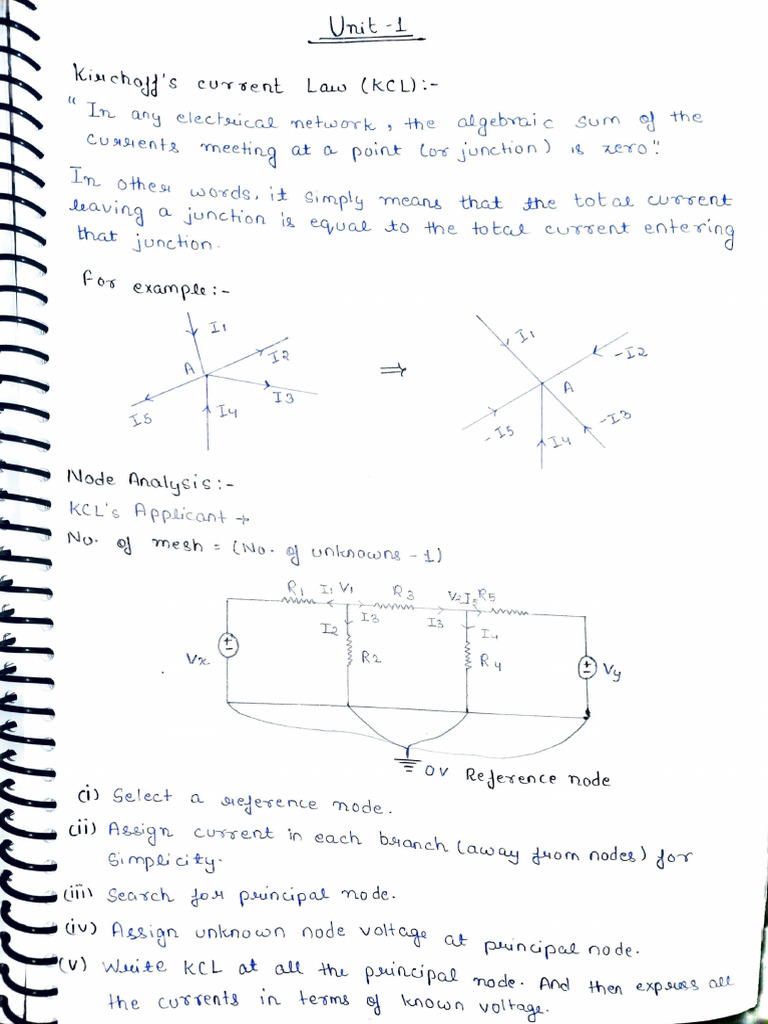 Unit-1
Kirchoff's current Law (KCL):-
"In any electrical network, the algebraic sum of the
currents meeting at a point (or junction) is zero".
In other words, it simply means that the total current
leaving a junction is equal to the total current entering
that junction.
For example:-
I1
I2
A
I3
I4
I5
⇒
I1
-I2
A
-I3
I4
-I5
Node Analysis:-
KCL's Applicant →
No. of mesh = (No. of unknowns - 1)
R1 I1 V1 R3 V2 I5 R5
I2 I3 I3 I4
Vx R2 R4 Vy
0V Reference node
(i) Select a reference node.
(ii) Assign current in each branch (away from nodes) for
simplicity.
(iii) Search for principal node.
(iv) Assign unknown node voltage at principal node.
(v) Write KCL at all the principal node. And then express all
the currents in terms of known voltage.